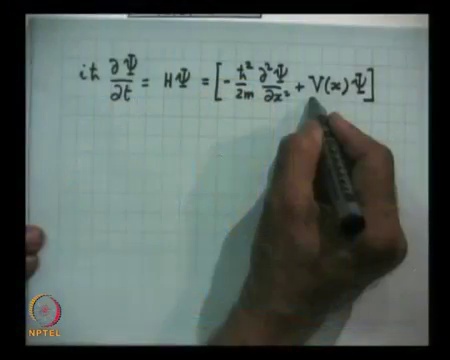 iħ ∂Ψ/∂t = HΨ = [- ħ²/2m ∂²Ψ/∂x² + V(x)Ψ]
NPTEL